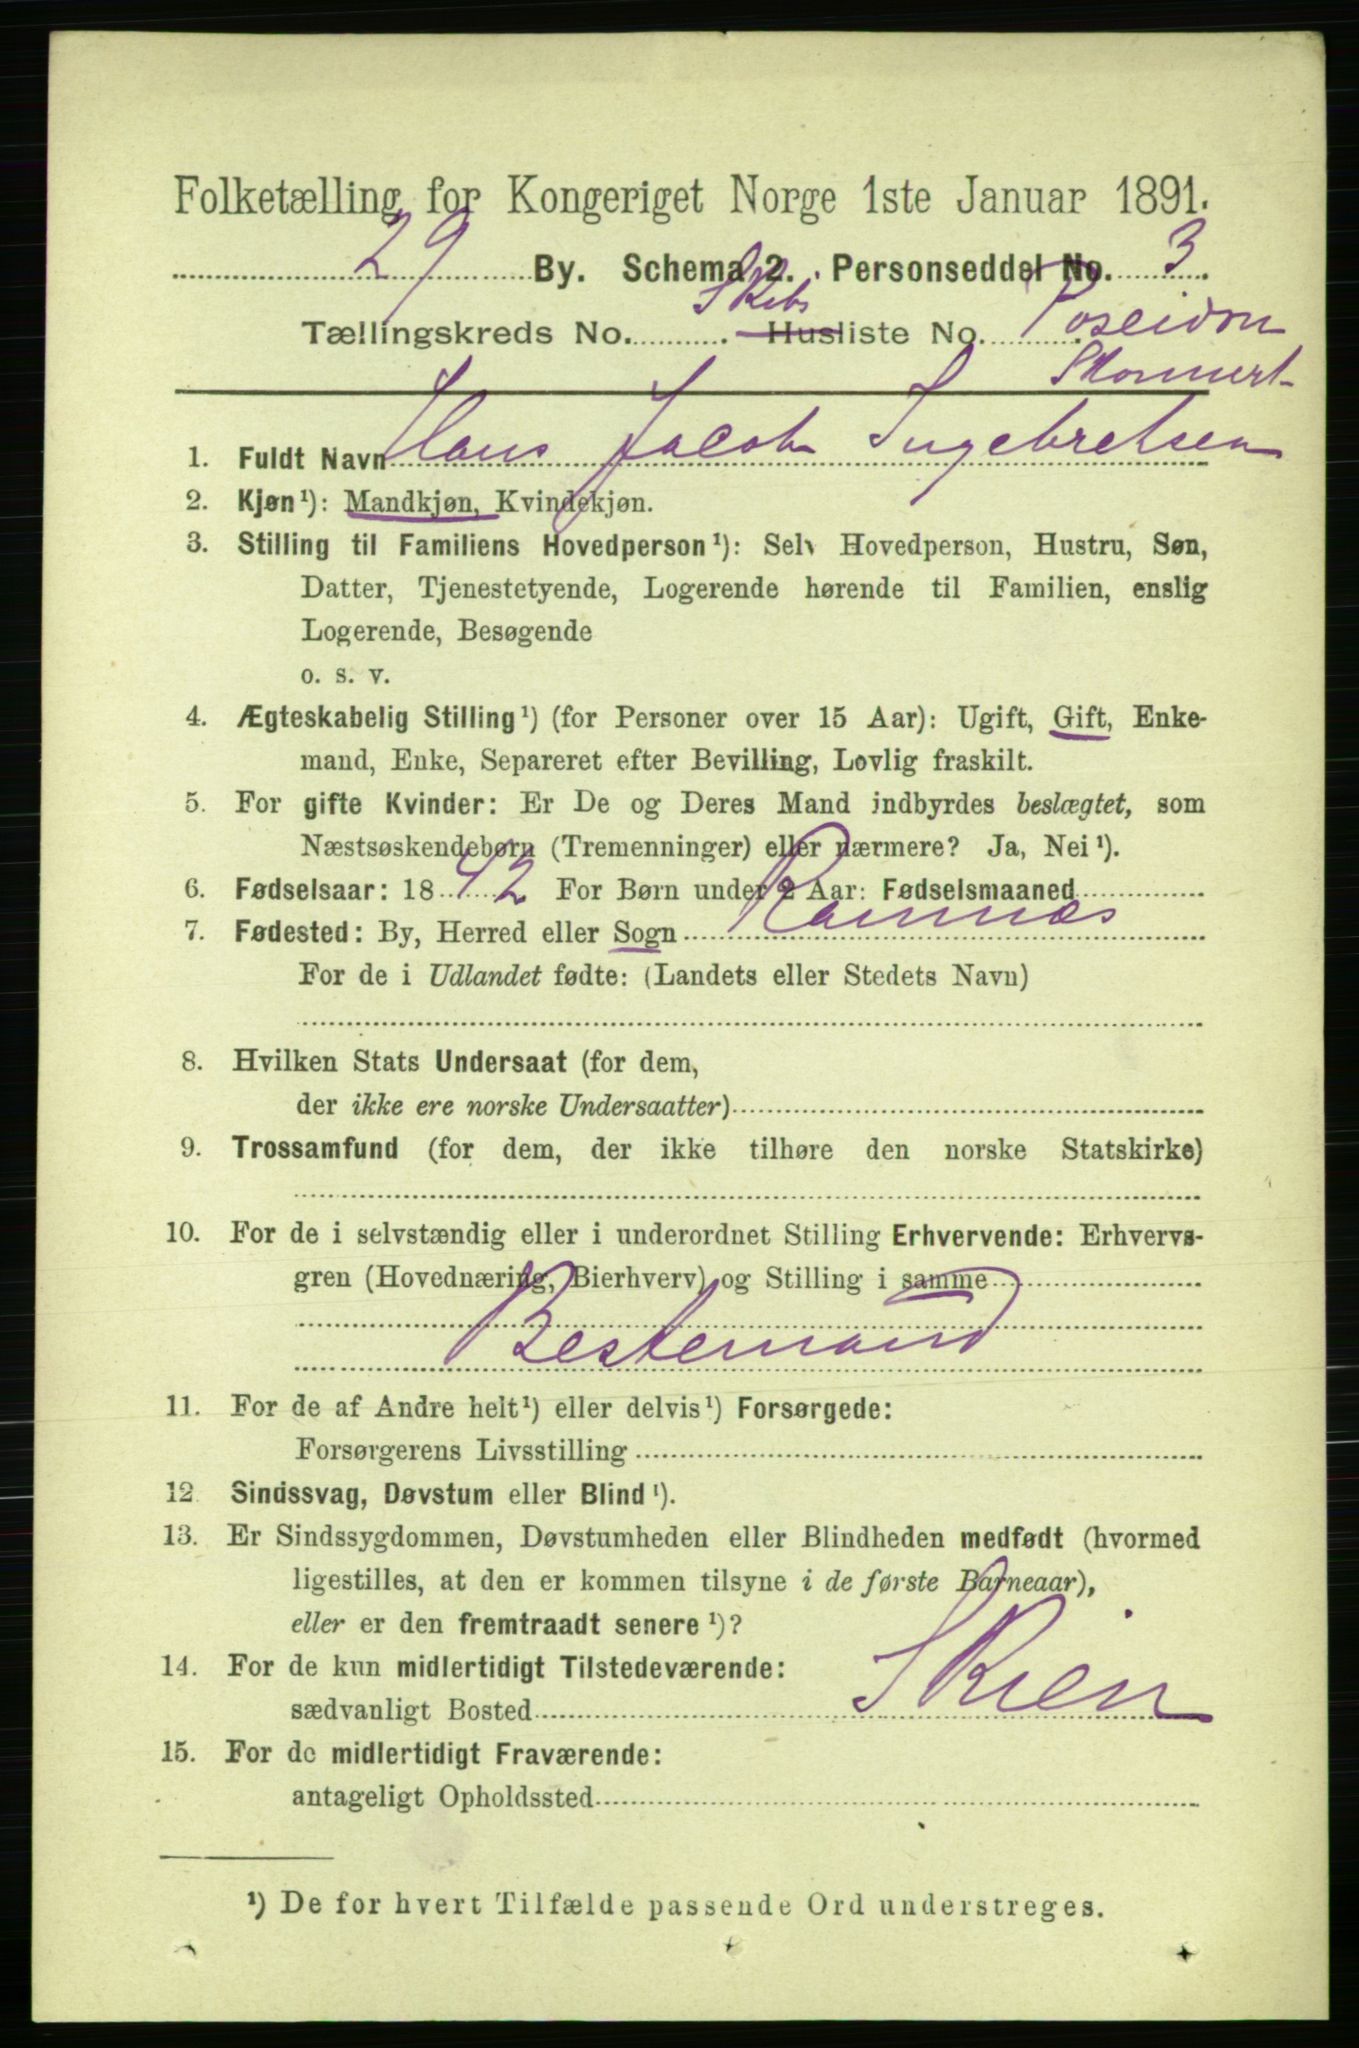 Folketælling for Kongeriget Norge 1ste Januar 1891.
29 By. Schema 2. Personseddel No. 3.
Tællingskreds No. . Skibs Husliste No. Poseidon
Skonnert
1. Fuldt Navn Hans Jacob Ingebretsen
2. Kjøn¹): Mandkjøn, Kvindekjøn.
3. Stilling til Familiens Hovedperson¹): Selv Hovedperson, Hustru, Søn,
Datter, Tjenestetyende, Logerende hørende til Familien, enslig
Logerende, Besøgende
o. s. v.
4. Ægteskabelig Stilling¹) (for Personer over 15 Aar): Ugift, Gift, Enke-
mand, Enke, Separeret efter Bevilling, Lovlig fraskilt.
5. For gifte Kvinder: Er De og Deres Mand indbyrdes beslægtet, som
Næstsøskendebørn (Tremenninger) eller nærmere? Ja, Nei¹).
6. Fødselsaar: 1842 For Børn under 2 Aar: Fødselsmaaned
7. Fødested: By, Herred eller Sogn Ramnæs
For de i Udlandet fødte: (Landets eller Stedets Navn)
8. Hvilken Stats Undersaat (for dem,
der ikke ere norske Undersaatter)
9. Trossamfund (for dem, der ikke tilhøre den norske Statskirke)
10. For de i selvstændig eller i underordnet Stilling Erhvervende: Erhvervs-
gren (Hovednæring, Bierhverv) og Stilling i samme
Bestemand
11. For de af Andre helt¹) eller delvis¹) Forsørgede:
Forsørgerens Livsstilling
12. Sindssvag, Døvstum eller Blind¹).
13. Er Sindssygdommen, Døvstumheden eller Blindheden medfødt (hvormed
ligestilles, at den er kommen tilsyne i de første Barneaar),
eller er den fremtraadt senere¹)?
14. For de kun midlertidigt Tilstedeværende:
sædvanligt Bosted Skien
15. For de midlertidigt Fraværende:
antageligt Opholdssted
¹) De for hvert Tilfælde passende Ord understreges.